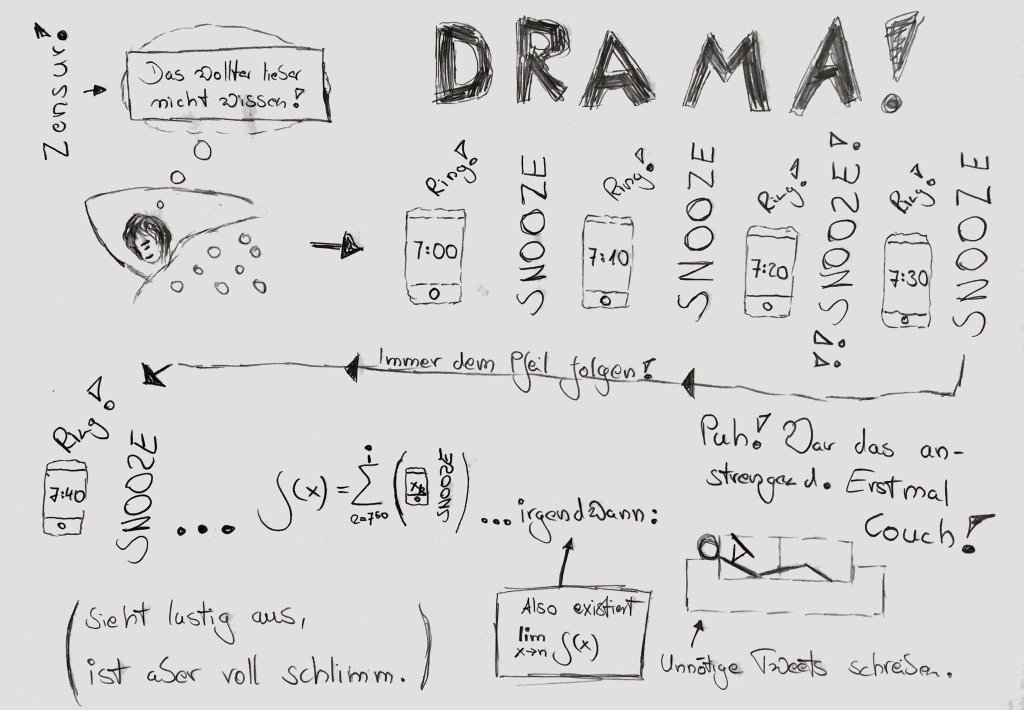 DRAMA!
Zensur!
Das wollter lieber
nicht wissen!
Ring!
7:00
SNOOZE
Ring!
7:10
SNOOZE
Ring!
7:20
!!SNOOZE!
Ring!
7:30
SNOOZE
Immer dem Pfeil folgen!
Ring!
7:40
SNOOZE
...
f(x) = ∑ ( SNOOZE )
... irgendwann:
Also existiert
lim
x→n f(x)
Puh! War das an-
strengend. Erstmal
Couch!
Unnötige Tweets schreiben.
(Sieht lustig aus,
ist aber voll schlimm.)